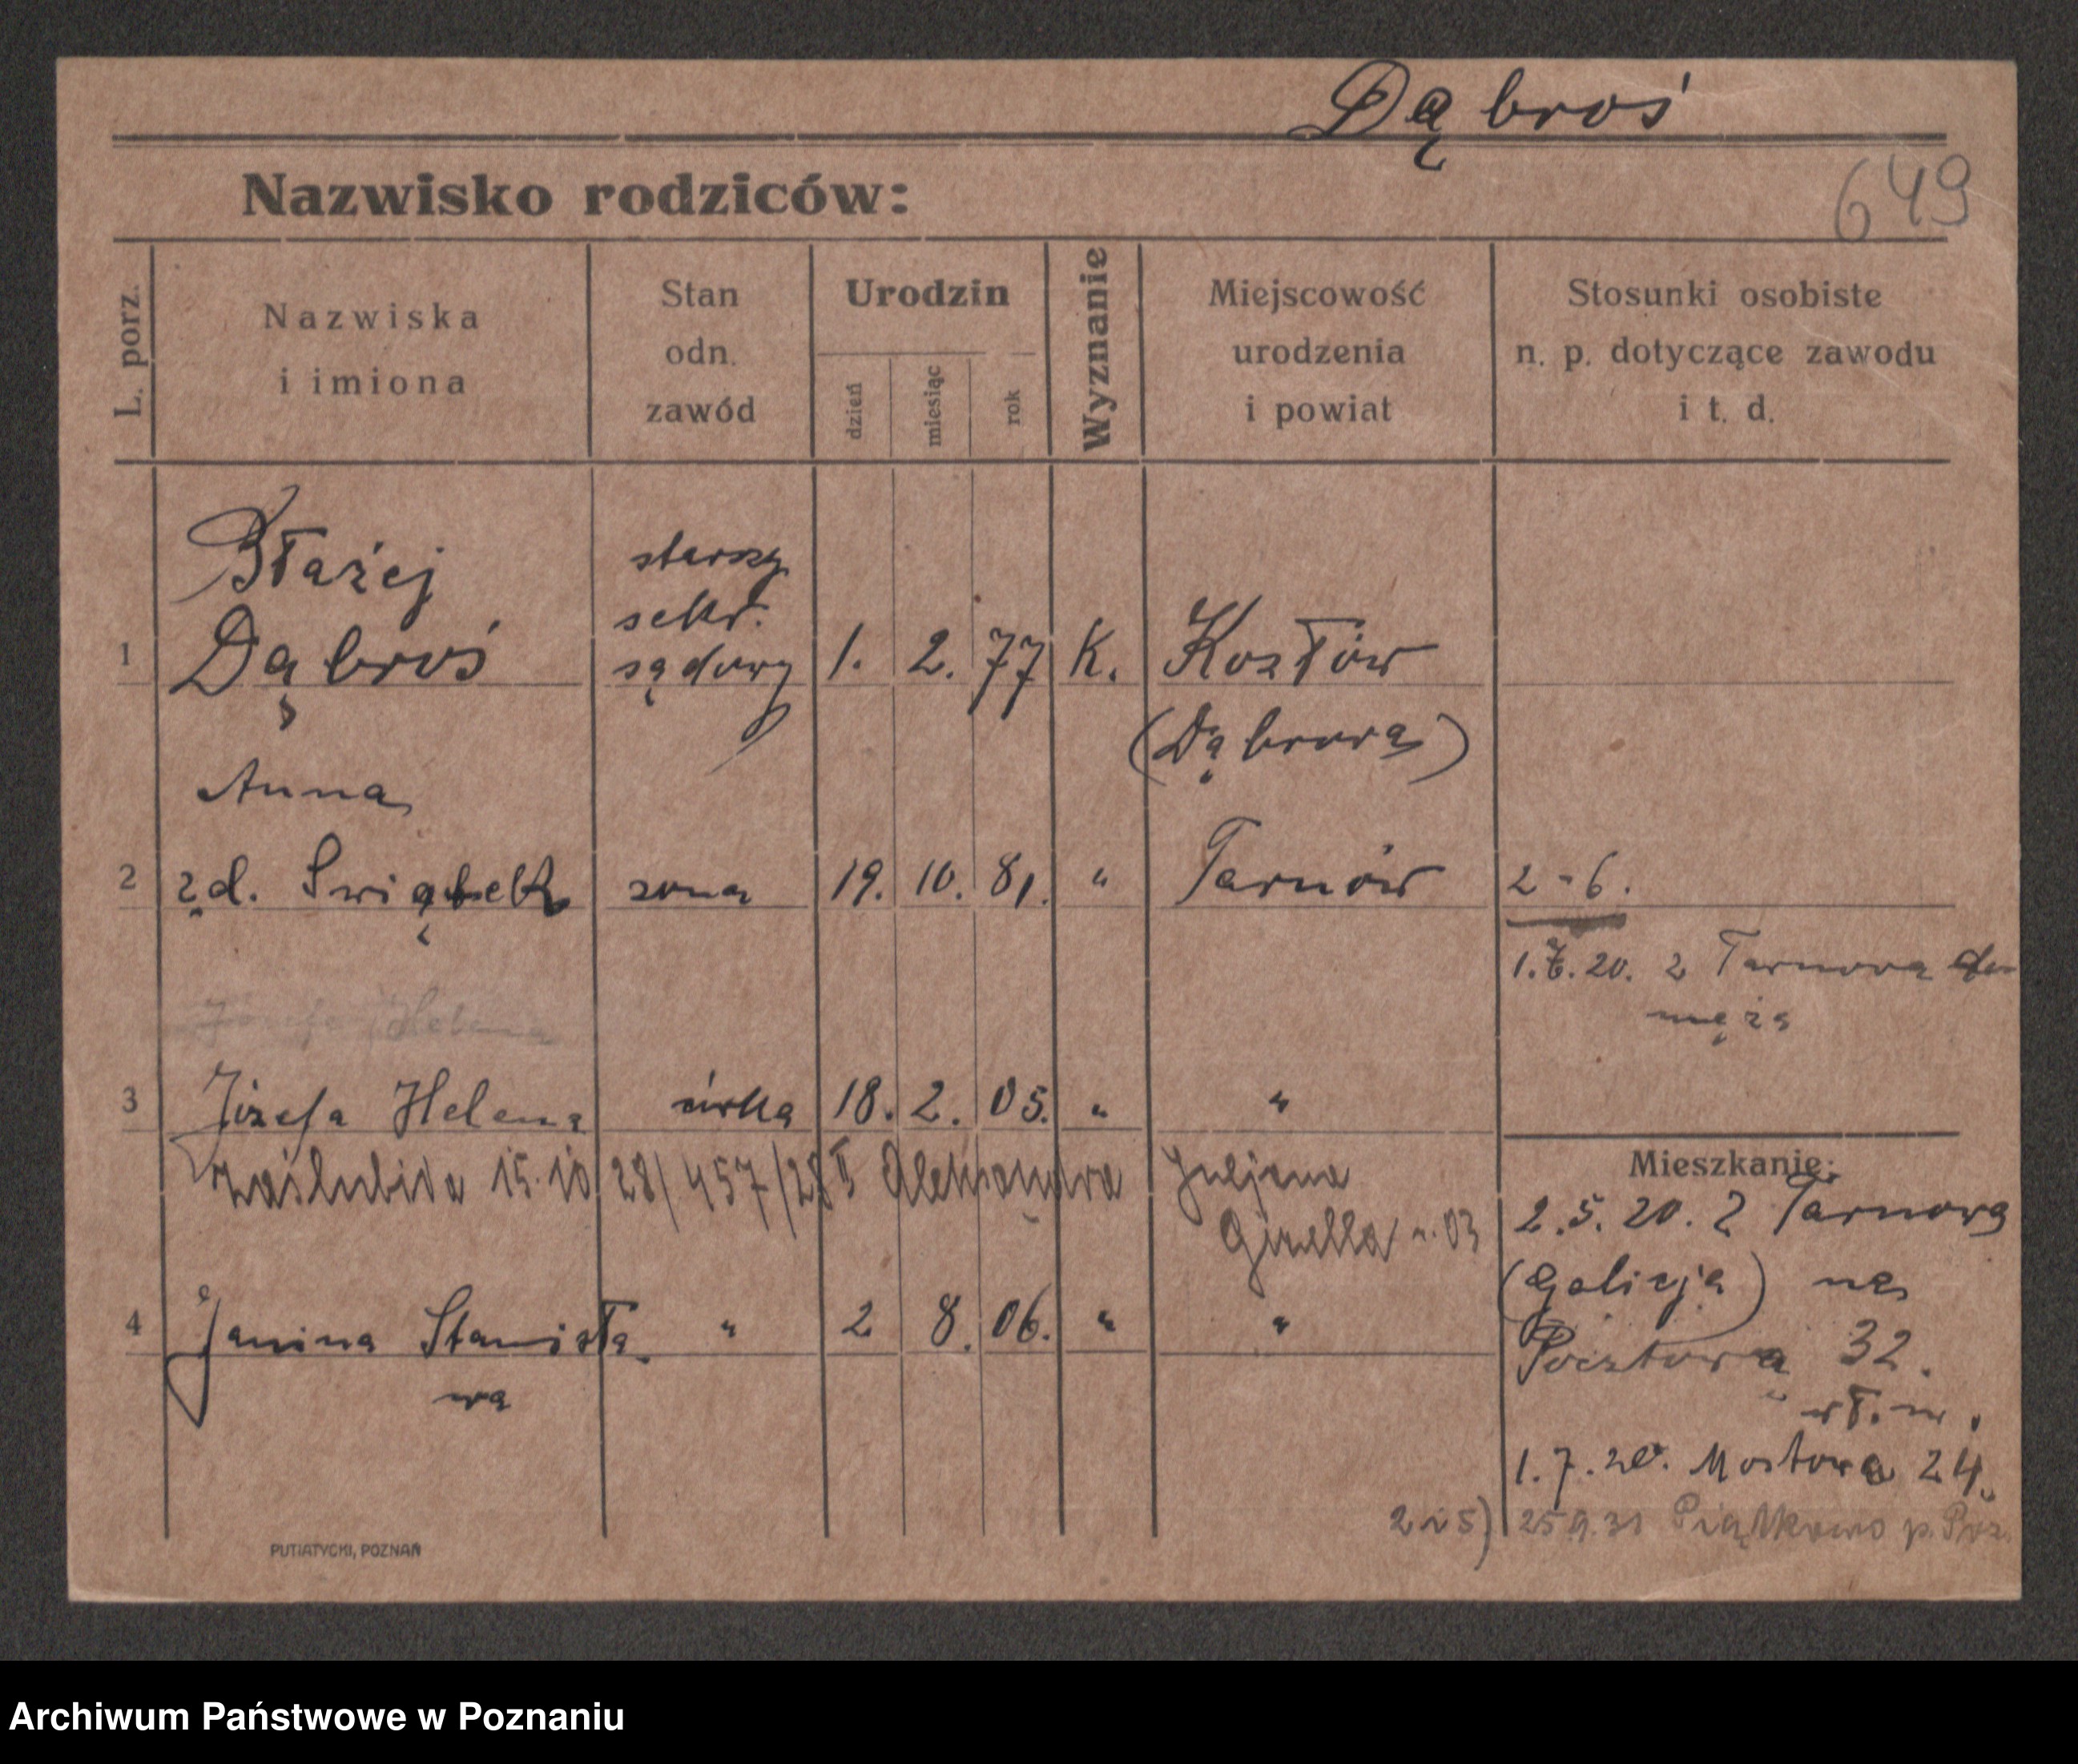 Dąbroś
Nazwisko rodziców:
649
L. porz.
Nazwiska
i imiona
Stan
odn.
zawód
Urodzin
dzień
miesiąc
rok
Wyznanie
Miejscowość
urodzenia
i powiat
Stosunki osobiste
n. p. dotyczące zawodu
i t. d.
Błażej
starszy
sekr.
1 Dąbroś sądowy 1. 2. 77 K. Kozłów
(Dąbrowa)
Anna
2 z d. Swiąbek żona 19. 10. 81. " Tarnów 2-6.
1.7.20. z Tarnowa do
męża
Józefa Helena
3 Józefa Helena córka 18. 2. 05. " "
zaślubiła 15.10 28/457/28 II Aleksandra Juljana
Gizella r. 03
Mieszkanie:
2.5.20. z Tarnowa
(Galicja) na
4 Janina Stanisła " 2 8. 06. " "
wa
Pocztowa 32.
wł. m.
1.7.20. Mostowa 24.
2 i 5) 25.9.31 Piątkowo p. Poz.
PUTIATYCKI, POZNAŃ
Archiwum Państwowe w Poznaniu